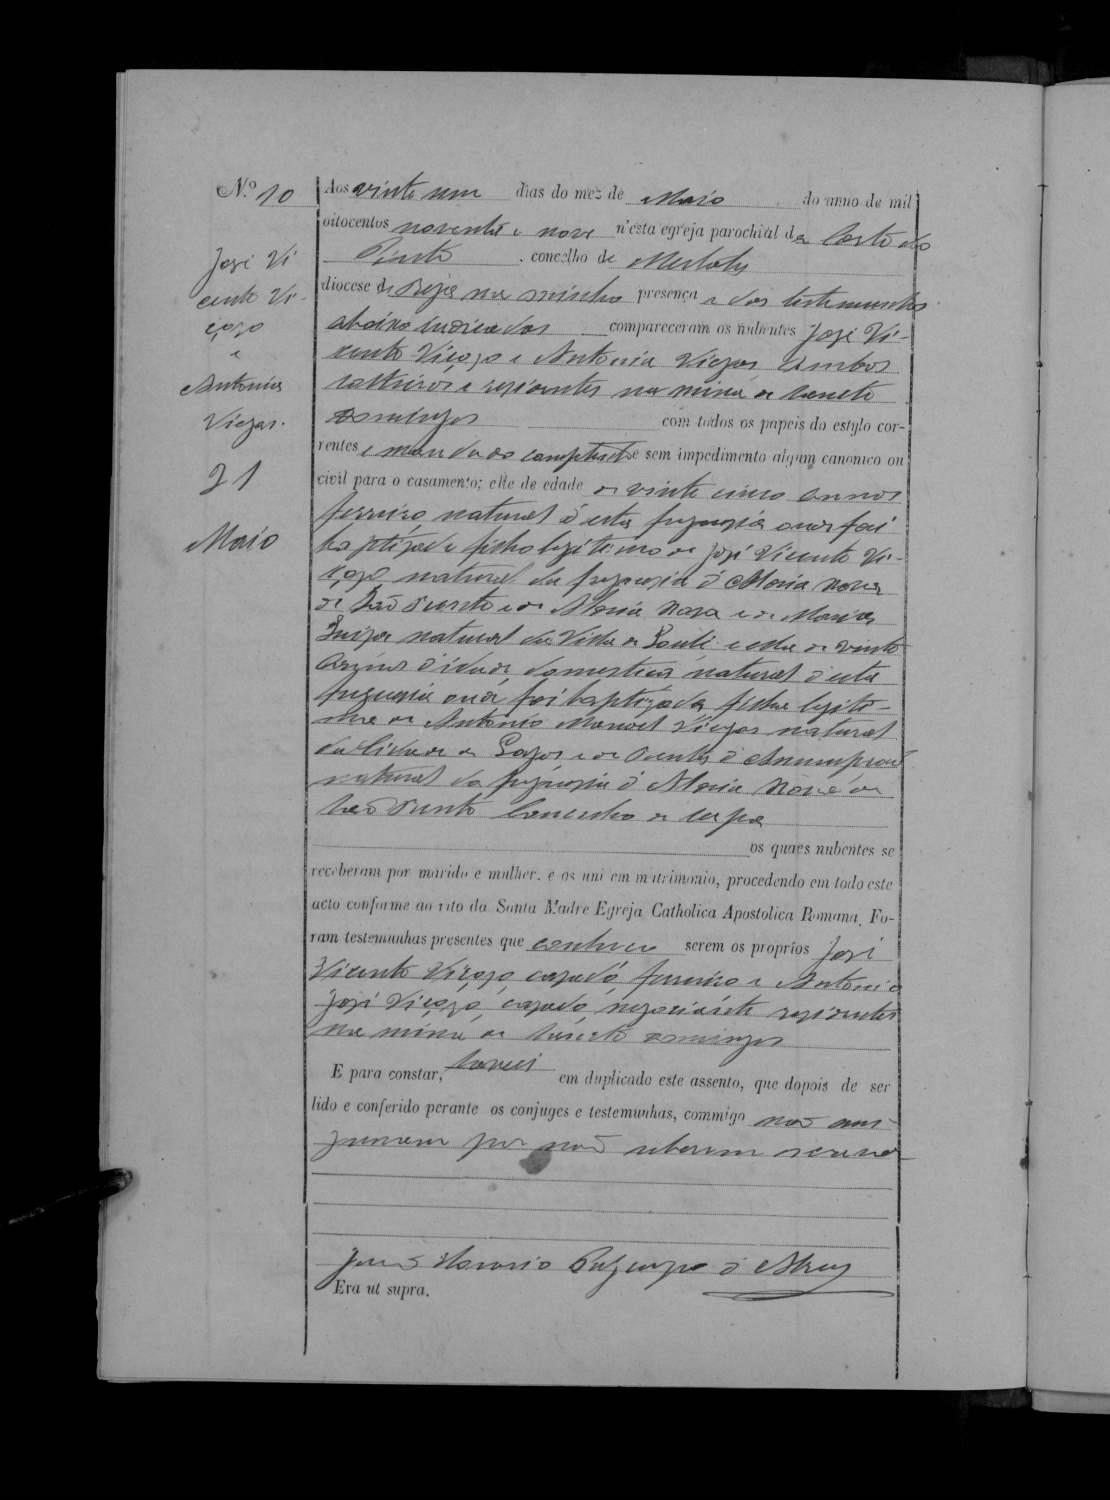 N.º 10
Aos vinte um dias do mez de Maio do anno de mil
oitocentos noventa e nove n'esta egreja parochial da Corte do
Pinto, concelho de Mertola
diocese de Beja na minha presença e das testemunhas
abaixo indicadas compareceram os nubentes José Vi-
cente Viçozo e Antonia Viegas ambos
solteiros e residentes na mina de Sancto
Domingos com todos os papeis do estylo cor-
rentes e mandado competente e sem impedimento algum canonico ou
civil para o casamento; elle de edade de vinte cinco annos
ferreiro natural d'esta freguesia onde foi
baptizado filho legitimo de José Vicente Vi-
çozo natural da freguesia d'Aldeia nova
de São Bento e de Aldeia nova e de Maria
Luiza natural da Villa de Loulé e ella de vinte
annos d'idade, domestica natural d'esta
freguesia onde foi baptizada filha legiti-
ma de Antonio Manoel Viegas natural
da Cidade de Lagos e de Bentes d'Annunpciação
natural da freguesia d'Aldeia Nova de
São Bento Concelho de Serpa
os quaes nubentes se
receberam por marido e mulher, e os uni em matrimonio, procedendo em todo este
acto conforme ao rito da Santa Madre Egreja Catholica Apostolica Romana. Fo-
ram testemunhas presentes que conheço serem os proprios José
Vicente Viçozo, cazado, ferreiro e Antonio
José Viçozo, cazado, negociante residentes
na mina de Sancto Domingos
E para constar, lavrei em duplicado este assento, que depois de ser
lido e conferido perante os conjuges e testemunhas, commigo não assi-
gnaram por não saberem escrever
d'Abreu
Era ut supra.
José Vi
cente Vi-
çozo
e
Antonia
Viegas.
21
Maio